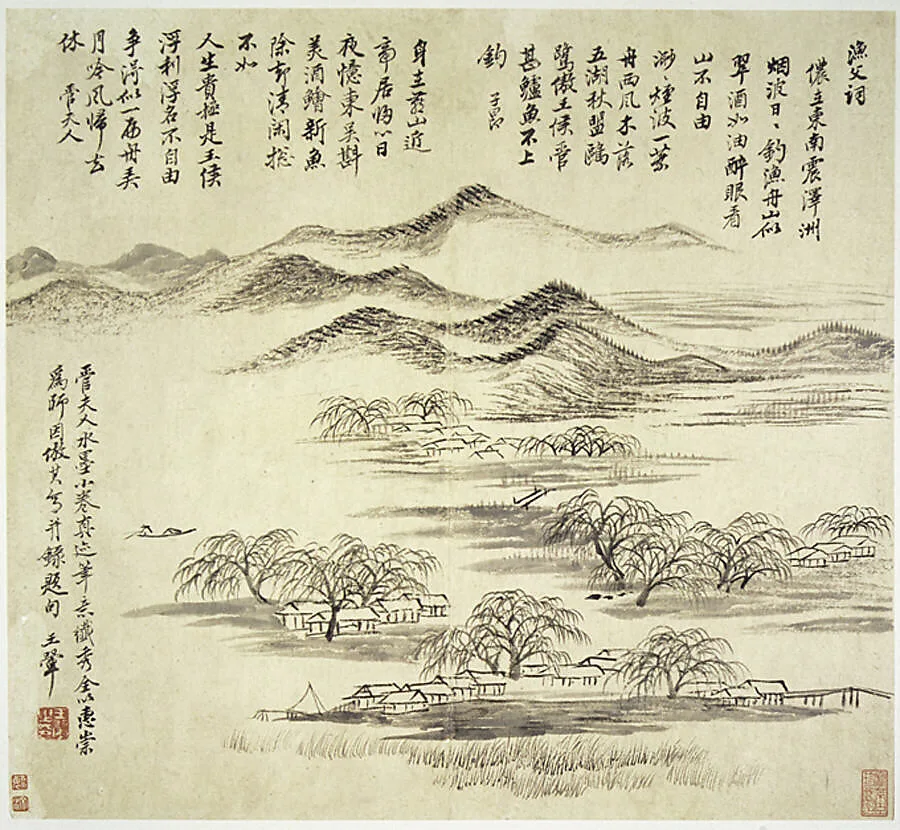 漁父詞
儂在東南震澤洲
烟波日〻釣漁舟山似
翠酒如油醉眼看
山不自由
渺〻煙波一葉
舟西風木落
五湖秋盟鷗
鷺傲王侯管
甚鱸魚不上
鈎 子昂
身在燕山近
帝居歸心日
夜憶東吳斟
美酒鱠新魚
除却清閑捴
不如
人生貴極是王侯
浮利浮名不自由
争得似一扁舟弄
月吟風歸去
休 管夫人
管夫人水墨小卷真迹筆意纖秀全以惠崇
為師因倣其寫并錄題句 王翬